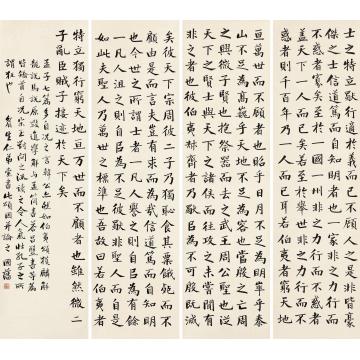 士之特立獨行適於義而已不顧人之是非皆豪
傑之士信道篤而自知明者也一家非之力行而
不惑者寡矣至於一國一州非之力行而不惑者
蓋天下一人而已矣若至於舉世非之力行而不
惑者則千百年乃一人而已耳若伯夷者窮天地
亘萬世而不顧者也昭乎日月不足為明崒乎泰
山不足為高巍乎天地不足為容也當殷之亡周
之興微子賢也抱祭器而去之武王周公聖也從
天下之賢士與天下之諸侯而往攻之未嘗聞有
非之者也彼伯夷叔齊者乃獨以為不可殷既滅
矣彼天下宗周彼二子乃獨恥食其粟餓死而不
顧由是而言夫豈有求而為哉信道篤而自知明
也今世之所謂士者一凡人譽之則自以為有餘
一凡人沮之則自以為不足彼獨非聖人而自是
如此夫聖人乃萬世之標準也余故曰若伯夷者
特立獨行窮天地亘萬世而不顧者也雖然微二
子亂臣賊子接迹於天下矣
孟子七篇多自況之言韓公亦然如伯夷頌獲麟解
龍說馬說原毀進學解与孟簡書答呂毉書等篇
皆自況宋玉對問之讀之令人氣孔子之所
謂狂也
生仁弟索書此頌因并論之 國藩